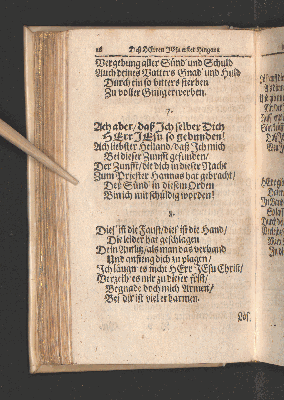 18 Deß HErren JEsu erster Hingang
Vergebung aller Sünd und Schuld
Auch deines Vatters Gnad und Huld
Durch ein so bitters sterben
Zu voller Gnüg erwerben.
7.
Ach aber/ daß Ich selber Dich
HErr JEsu so gebunden!
Ach liebster Heiland/ daß Ich mich
Bei dieser Zunfft gefunden/
Der Zunfft/ die dich in dieser Nacht
Zum Priester Hannas hat gebracht/
Der Sünd in diesem Orden
Bin ich mit schuldig worden!
8.
Dieß ist die Faust/ dieß ist die Hand/
Die leider hat geschlagen
Dein Antlitz/ als man das verband
Und anfing dich zu plagen/
Ich läugn es nicht HErr JEsu Christ/
Verzeih es mir zu dieser frist/
Begnade doch mich Armen/
Bei dir ist viel erbarmen.